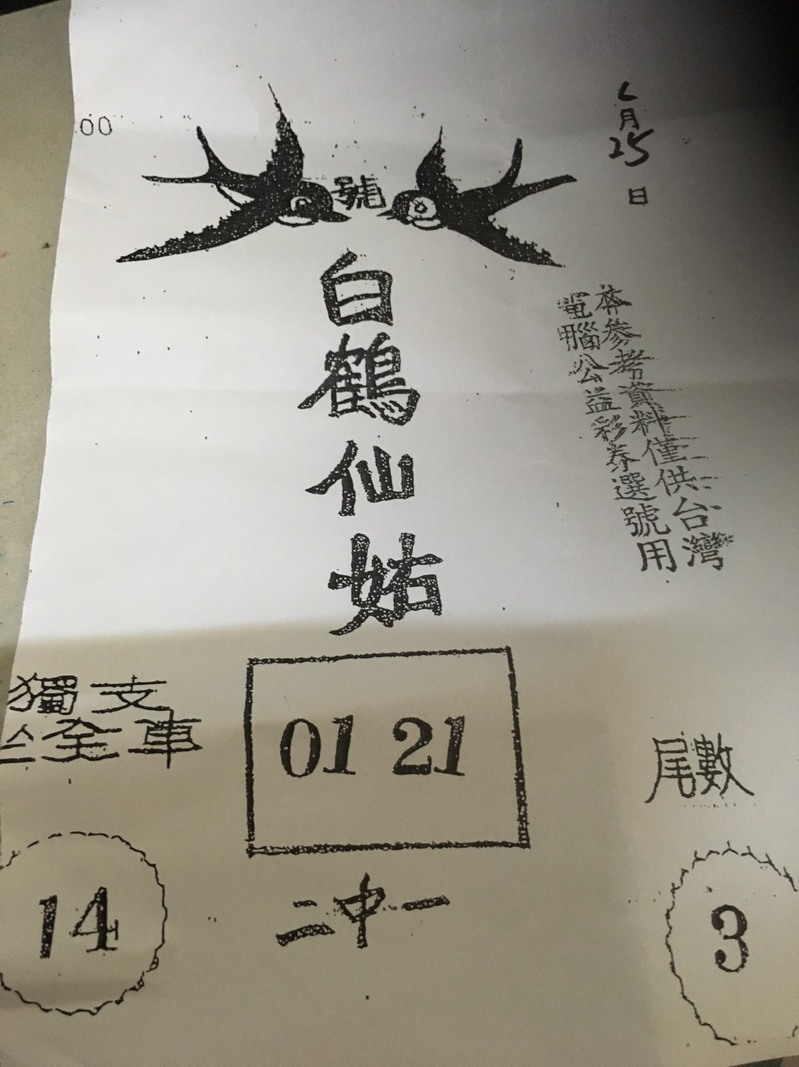 00
月
25
日
號
白鶴仙姑
本參考資料僅供台灣
電腦公益彩券選號用
獨支
全車
01 21
尾數
14
二中一
3